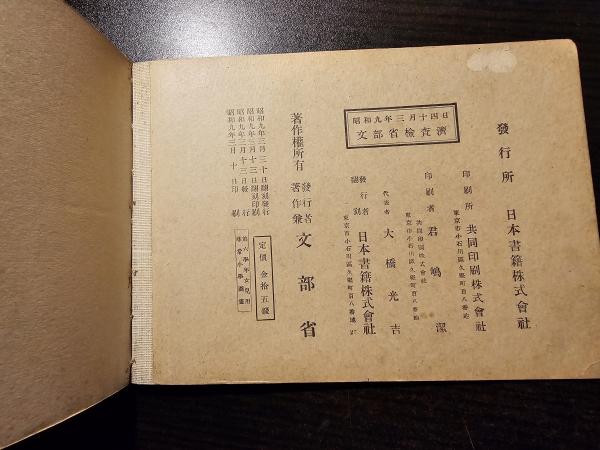 昭和九年三月十四日
文部省檢查濟
發行所 日本書籍株式會社
印刷所 共同印刷株式會社
東京市小石川區久堅町百八番地
印刷者 君嶋潔
共同印刷株式會社
東京市小石川區久堅町百八番地
代表者 大橋光吉
飜刻發行者 日本書籍株式會社
東京市小石川區久堅町百八番地
著作權所有 著作兼發行者 文部省
昭和九年三月十日印刷
昭和九年三月十三日發行
昭和九年三月十三日飜刻印刷
昭和九年三月三十日飜刻發行
定價 金拾五錢
第六學年女兒用
尋常小學圖畫